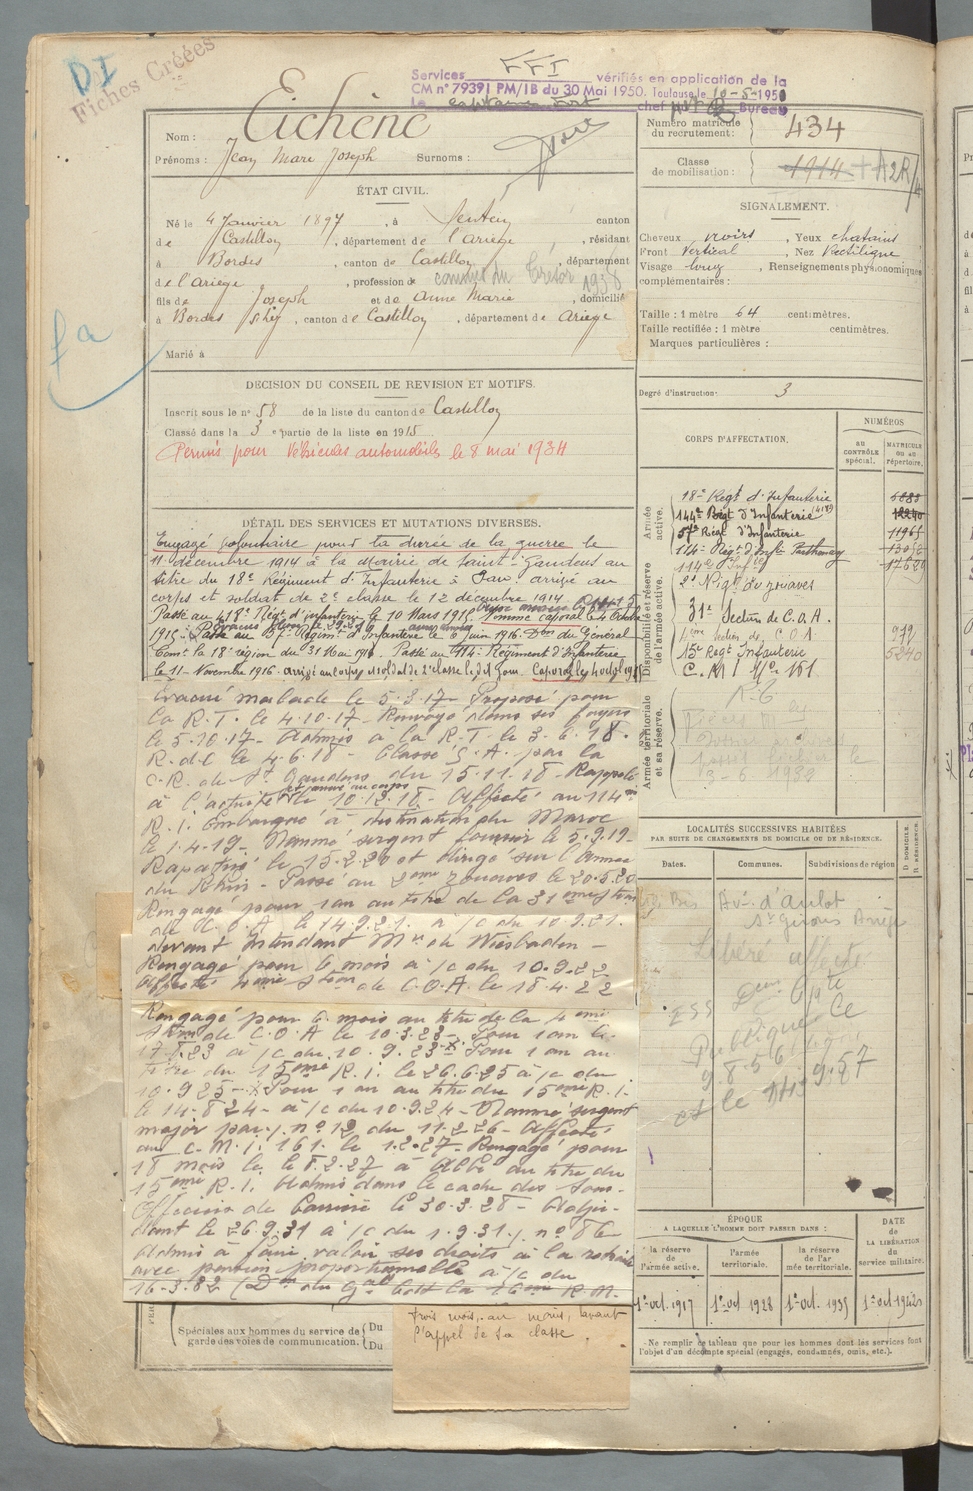 D.I
Fiches Créées
Services FFI vérifiés en application de la
CM n° 79391 PM/1B du 30 Mai 1950. Toulouse le 10-5-1950
Le capitaine chef Bureau
Nom : Eichène
Prénoms : Jean Marc Joseph Surnoms :
Numéro matricule
du recrutement : 434
Classe
de mobilisation : 1914
ÉTAT CIVIL.
Né le 4 Janvier 1897, à Sentein, canton
de Castillon, département de l'Ariège, résidant
à Bordes, canton de Castillon, département
de l'Ariège, profession de commis du Trésor 1938
fils de Joseph et de Anne Marie, domicilié
à Bordes s/Lez, canton de Castillon, département de Ariège
Marié à
SIGNALEMENT.
Cheveux noirs, Yeux chatains
Front Vertical, Nez Rectiligne
Visage long, Renseignements physionomiques
complémentaires :
Taille : 1 mètre 64 centimètres.
Taille rectifiée : 1 mètre centimètres.
Marques particulières :
Degré d'instruction : 3
DÉCISION DU CONSEIL DE REVISION ET MOTIFS.
Inscrit sous le n° 58 de la liste du canton de Castillon
Classé dans la 3e partie de la liste en 1915
Permis pour Véhicules automobiles le 8 mai 1934
DÉTAIL DES SERVICES ET MUTATIONS DIVERSES.
Engagé volontaire pour la durée de la guerre le
11 décembre 1914 à la Mairie de Saint-Gaudens au
titre du 18e Régiment d'Infanterie à Pau, arrivé au
corps et soldat de 2e classe le 12 décembre 1914
Passé au 418e Régt d'infanterie le 10 Mars 1915. Nommé caporal le 4 Octobre
1915. Passé au 57e Régiment d'Infanterie le 6 Juin 1916. Don du Général
Comt la 18e région du 31 Mai 1916. Passé au 114e Régiment d'Infanterie
le 11 Novembre 1916. arrivé au corps et soldat de 2e classe le dit jour. Caporal le 4 oct 1915
Evacué malade le 5.3.17 Proposé pour
la R.T. le 4.10.17 - Renvoyé dans ses foyers
le 5.10.17 - Admis à la R.T. le 3.6.18.
R.d.c le 4.6.18 - Classé S.A. par la
C.R. de St Gaudens du 15.11.18 - Rappelé
à l'activité et arrivé au corps le 10.12.18 - Affecté au 114e
R.I. Embarqué à destination du Maroc
le 1.4.19 - Nommé sergent fourrier le 5.9.19 -
Rapatrié le 15.2.20 et dirigé sur l'Armée
du Rhin - Passé au 2eme zouaves le 20.5.20
Rengagé pour 1 an au titre de la 31eme Ston
de C.O.A le 14.9.21. à /c du 10.9.21.
devant Intendant Mre de Wiesbaden -
Rengagé pour 6 mois à /c du 10.9.22
Affecté 4eme Ston de C.O.A. le 18.4.22
Rengagé pour 6 mois au titre de la 4eme
Ston de C.O.A le 10.3.23 - Pour 1 an le
17.8.23 à /c du 10.9.23 - Pour 1 an au
titre du 15eme R.I. le 26.6.25 à /c du
10.9.25 - Pour 1 an au titre du 15eme R.I.
le 14.8.24 - à /c du 10.9.24 - Nommé sergent
major par n° 12 du 11.2.26 - Affecté
au C.M.I. 161 le 1.2.27 - Rengagé pour
18 mois le 8.2.27 à Albi au titre du
15eme R.I. Admis dans le cadre des Sous-
Officiers de Carrière le 30.3.28 - Adju-
dant le 26.9.31 à /c du 1.9.31. n° 86
Admis à faire valoir ses droits à la retraite
avec pension proportionnelle à /c du
16.3.32 (Don du Gal Cdt la R.M.
trois mois, au moins, avant
l'appel de sa classe.
Spéciales aux hommes du service de
garde des voies de communication.
Du
Du
CORPS D'AFFECTATION.
NUMÉROS
AU CONTRÔLE spécial.
MATRICULE OU AU répertoire.
Armée active.
18e Régt d'Infanterie
144e Régt d'Infanterie (418e)
57e Régt d'Infanterie 11965
114e Régt d'Infie Parthenay
114e Infie
Disponibilité et réserve de l'armée active.
2e Régt de zouaves
31e Section de C.O.A.
4eme Section de C.O.A
15e Régt Infanterie 5240
C.M.I N° 161
Armée territoriale et sa réserve.
LOCALITÉS SUCCESSIVES HABITÉES
PAR SUITE DE CHANGEMENTS DE DOMICILE OU DE RÉSIDENCE.
Dates. Communes. Subdivisions de région
D. DOMICILE. R. RÉSIDENCE.
Av. d'Aulot
St Girons Ariège
Libéré
ÉPOQUE
A LAQUELLE L'HOMME DOIT PASSER DANS :
la réserve de l'armée active.
l'armée territoriale.
la réserve de l'armée territoriale.
DATE de LA LIBÉRATION du service militaire.
1er oct. 1917
1er oct. 1928
1er oct. 1935
1er oct. 1942
- Ne remplir ce tableau que pour les hommes dont les services font
l'objet d'un décompte spécial (engagés, condamnés, omis, etc.).